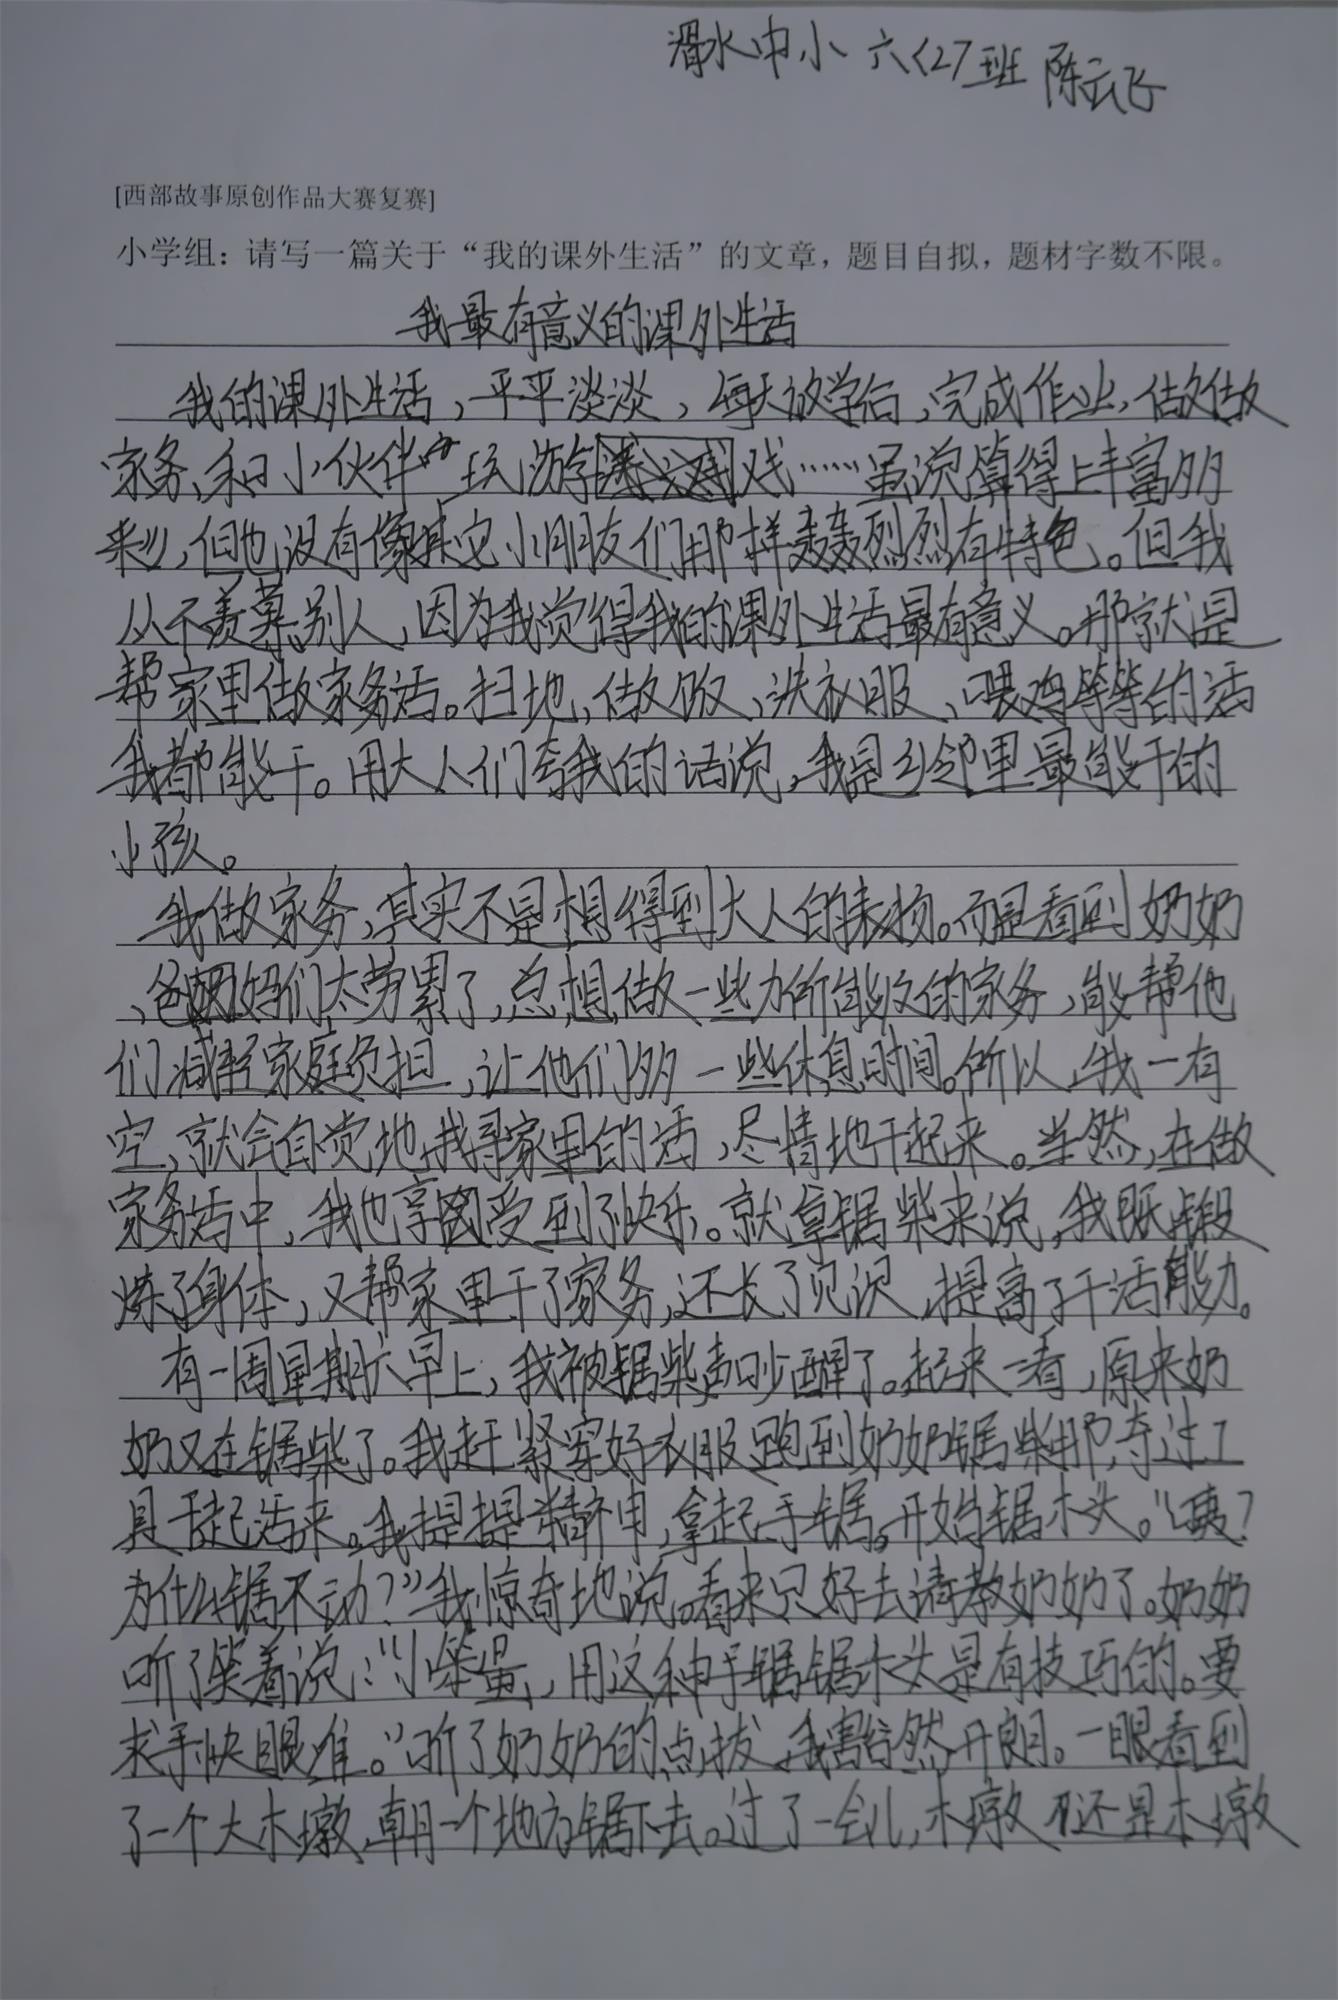 滑水中小 六<2>班 陈云飞
[西部故事原创作品大赛复赛]
小学组：请写一篇关于“我的课外生活”的文章，题目自拟，题材字数不限。
我最有意义的课外生活
我的课外生活，平平淡淡，每天放学后，完成作业，做做
家务，和小伙伴玩游戏……虽说算得上丰富多
彩，但也没有像其它小朋友们那样轰轰烈烈有特色。但我
从不羡慕别人，因为我觉得我的课外生活最有意义。那就是
帮家里做家务活。扫地，做饭，洗衣服，喂鸡等等的活
我都能干。用大人们夸我的话说，我是乡邻里最能干的
小孩。
我做家务，其实不是想得到大人的表扬。而是看到奶奶
，爸妈们太劳累了，总想做一些力所能及的家务，能帮他
们减轻家庭负担，让他们多一些休息时间。所以，我一有
空，就会自觉地找寻家里的活，尽情地干起来。当然，在做
家务活中，我也享受到了快乐。就拿锯柴来说，我既锻
炼了身体，又帮家里干了家务，还长了见识，提高了干活能力。
有一周星期六早上，我被锯柴声吵醒了。起来一看，原来奶
奶又在锯柴了。我赶紧穿好衣服跑到奶奶锯柴那，夺过工
具干起活来。我提提精神，拿起手锯。开始锯木头。“咦？
为什么锯不动？”我惊奇地说。看来只好去请教奶奶了。奶奶
听了笑着说：“小笨蛋，用这种手锯锯木头是有技巧的。要
求手快眼准。”听了奶奶的点拔，我豁然开朗。一眼看到
了一个大木墩，朝一个地方锯下去。过了一会儿，木墩还是木墩